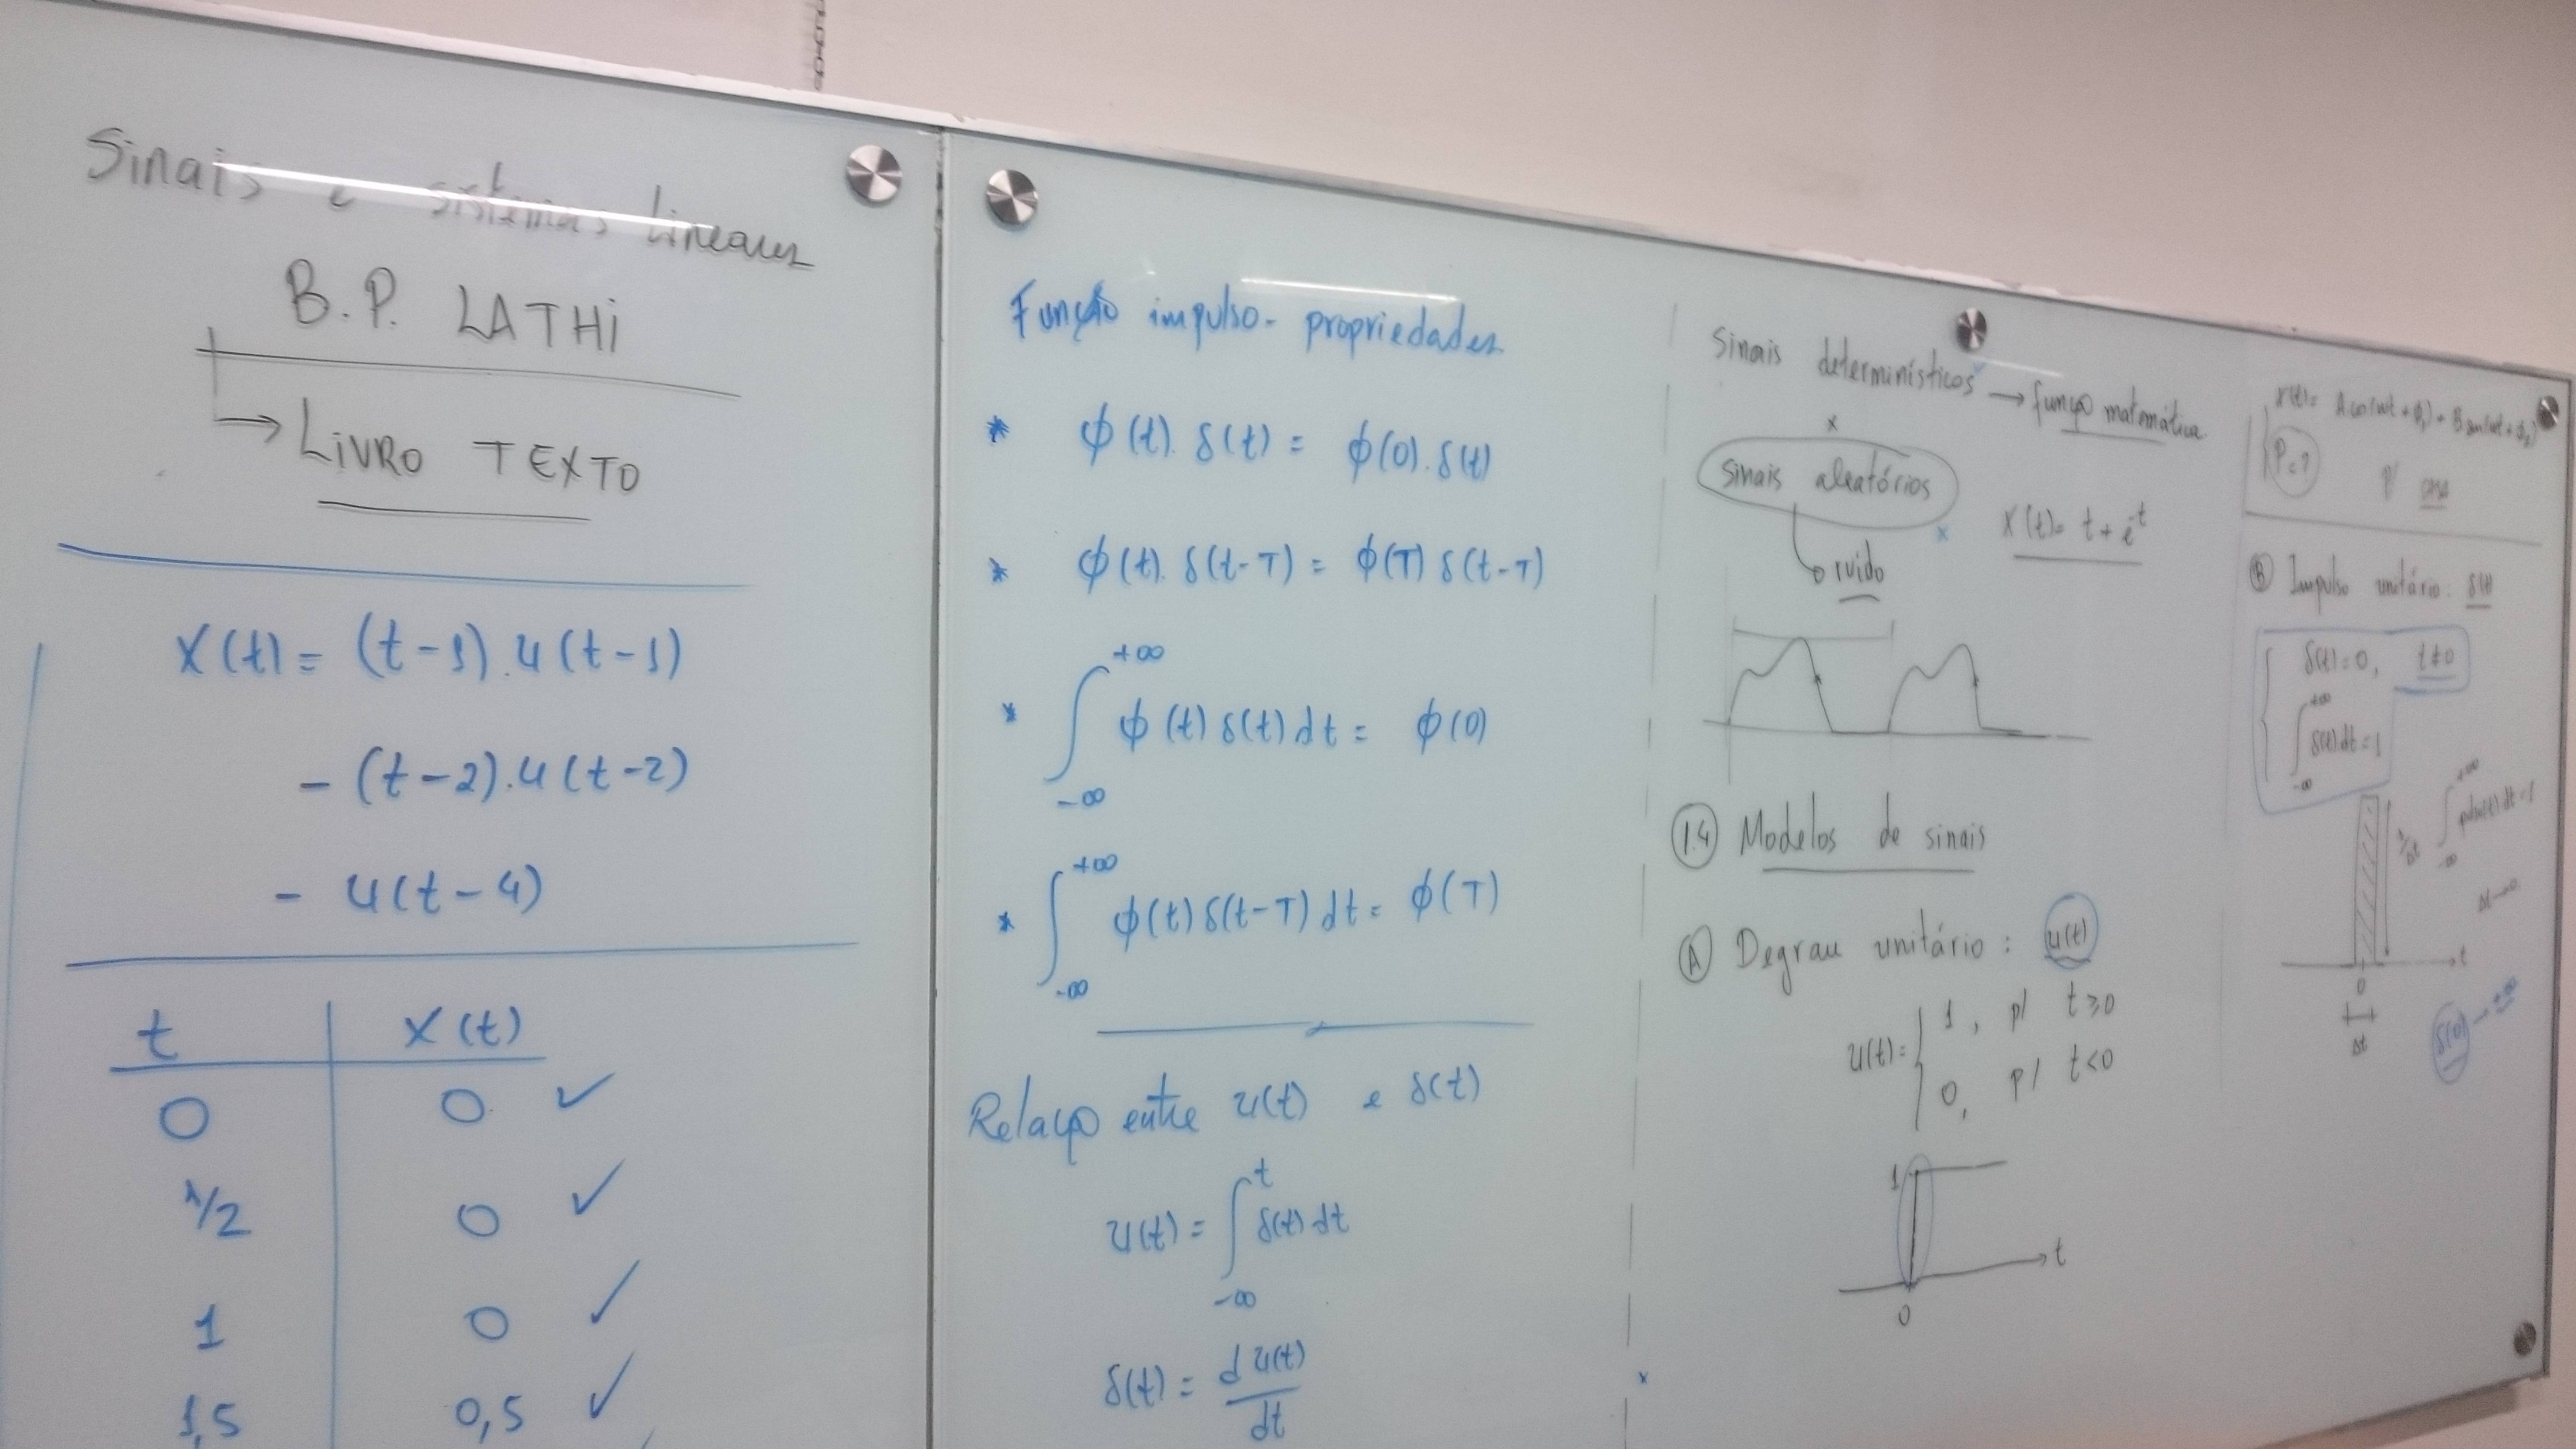 Sinais e sistemas Lineares
B.P. LATHi
→ LiVRO TEXTO
x(t) = (t-1).u(t-1)
- (t-2).u(t-2)
- u(t-4)
t | x(t)
0 | 0 ✓
1/2 | 0 ✓
1 | 0 ✓
1,5 | 0,5 ✓
Função impulso - propriedades
* ϕ(t).δ(t) = ϕ(0).δ(t)
* ϕ(t).δ(t-T) = ϕ(T) δ(t-T)
* ∫_{-∞}^{+∞} ϕ(t) δ(t) dt = ϕ(0)
* ∫_{-∞}^{+∞} ϕ(t) δ(t-T) dt = ϕ(T)
Relação entre u(t) e δ(t)
u(t) = ∫_{-∞}^{t} δ(t) dt
δ(t) = d u(t)/dt
Sinais determinísticos → função matemática
x
Sinais aleatórios
x(t) = t + e^{-t}
ruído
1.4 Modelos de sinais
A Degrau unitário: u(t)
u(t) = { 1, p/ t≥0
0, p/ t<0
1
t
0
x(t) = A cos(wt + ϕ₁) + B sen(wt + ϕ₂)
P=?
B Impulso unitário: δ(t)
δ(t) = 0, t≠0
∫_{-∞}^{+∞} δ(t) dt = 1
1/Δt
∫_{-∞}^{+∞} pulso(t) dt = 1
Δt→0
t
0
Δt
δ(0) → +∞